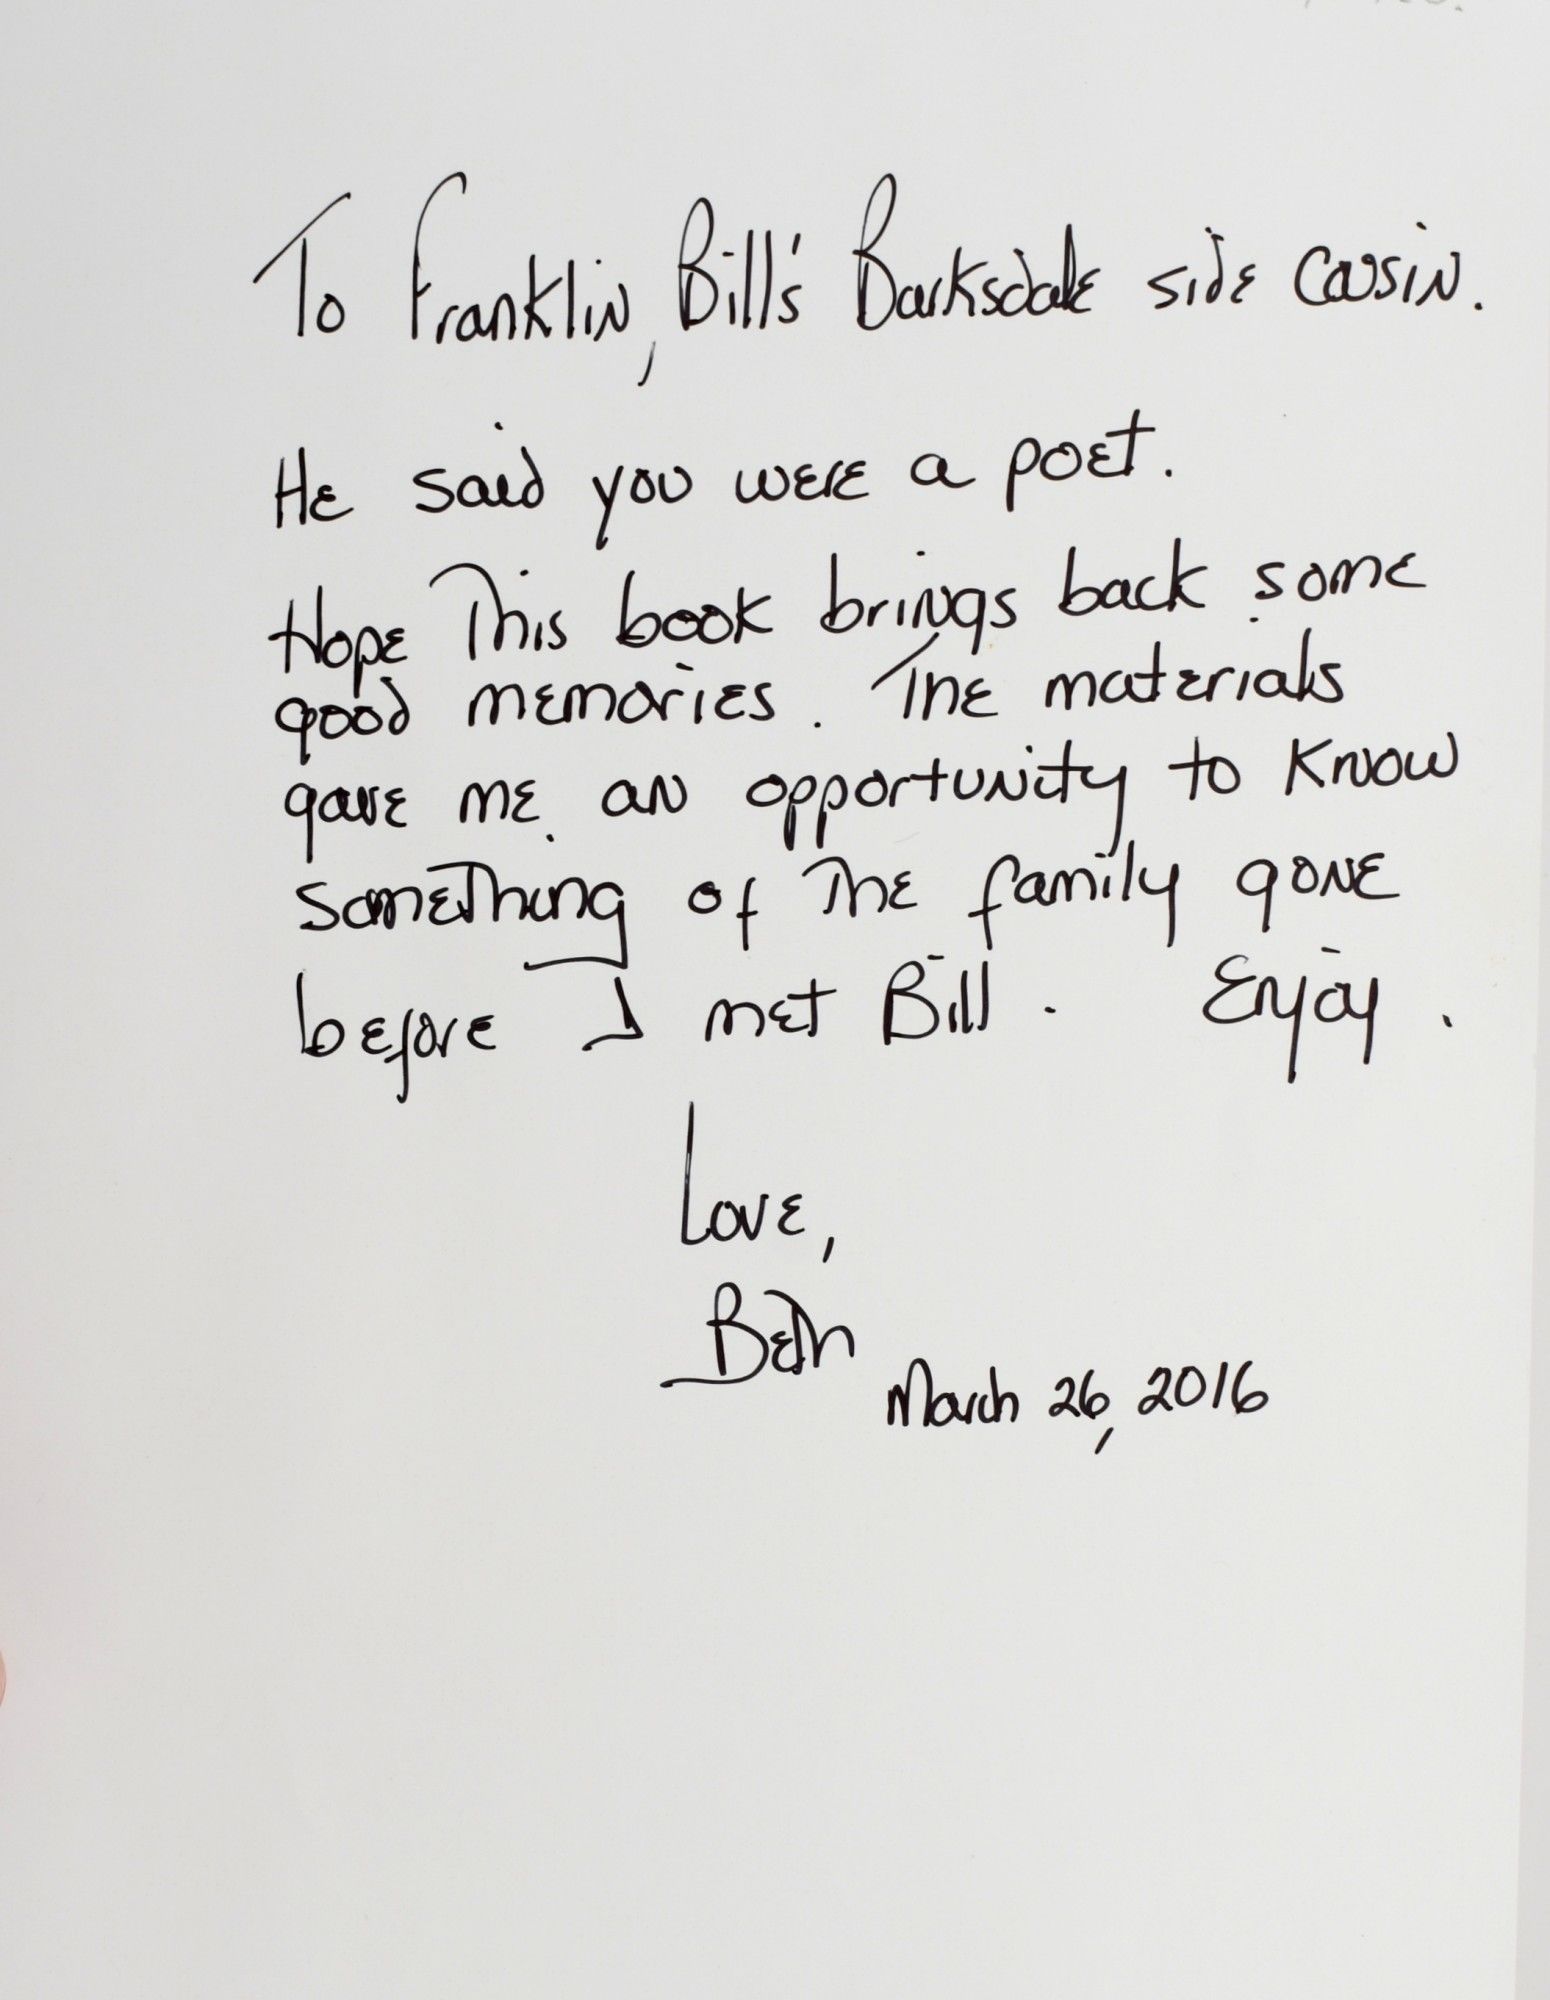 To Franklin, Bill's Barksdale side cousin.
He said you were a poet.
Hope This book brings back some
good memories. The materials
gave me an opportunity to know
something of The family gone
before I met Bill. Enjoy.
Love,
Beth
March 26, 2016